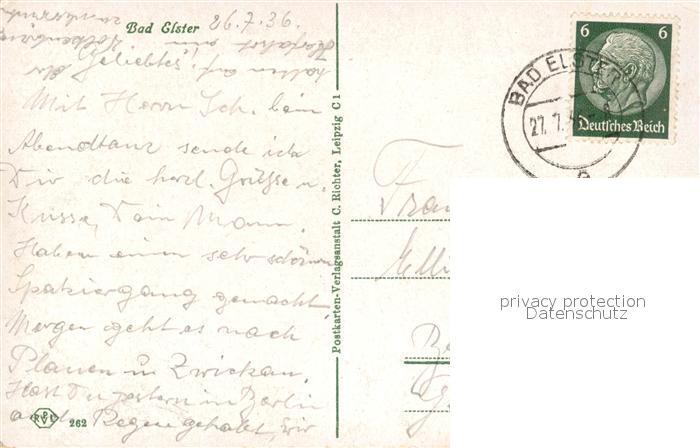 Bad Elster 26.7.36.
Geliebtes!
Mit Herrn Sch. beim
Abendtanz sende ich
Dir die herzl. Grüsse u.
Küsse, Dein Mann.
Haben einen sehr schönen
Spaziergang gemacht
Morgen geht es nach
Plauen u Zwickau.
Hast Du gestern in Berlin
auch Regen gehabt, wir
hatten auf der
262
Postkarten-Verlagsanstalt C. Richter, Leipzig C1
BAD ELSTER
27.7.
6 6
Deutsches Reich
Frau
Elli
privacy protection
Datenschutz